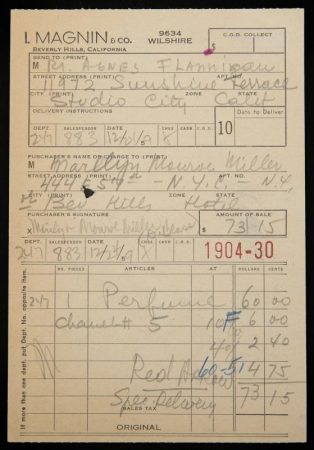 I. MAGNIN & CO.
BEVERLY HILLS, CALIFORNIA
9634
WILSHIRE
C.O.D. COLLECT
$
SEND TO (PRINT)
M Agnes Flannigan
STREET ADDRESS (PRINT) APT. NO.
11972 Sunshine Terrace
CITY (PRINT) ZONE STATE
Studio City Calif
DELIVERY INSTRUCTIONS
Date to Deliver
DEPT. SALESPERSON DATE CHGE CASH C.O.D.
247 883 X
10
PURCHASER'S NAME OR CHARGE TO (PRINT)
M Marilyn Monroe Miller
STREET ADDRESS (PRINT) APT. NO.
444 E 57th - N.Y.C. N.Y.
CITY (PRINT) ZONE STATE
Bev Hills Hotel
PURCHASER'S SIGNATURE AMOUNT OF SALE
x Marilyn Monroe Miller $ 73 15
DEPT. SALESPERSON DATE CHGE CASH C.O.D.
247 883 X
1904-30
If more than one dept. put Dept. No. opposite item.
NO. PIECES ARTICLES DOLLARS CENTS
247 1 Perfume 60 00
Chanel # 5 6 00
2 40
Red Arrow 4 75
Spec Delivery 73 15
SALES TAX
ORIGINAL